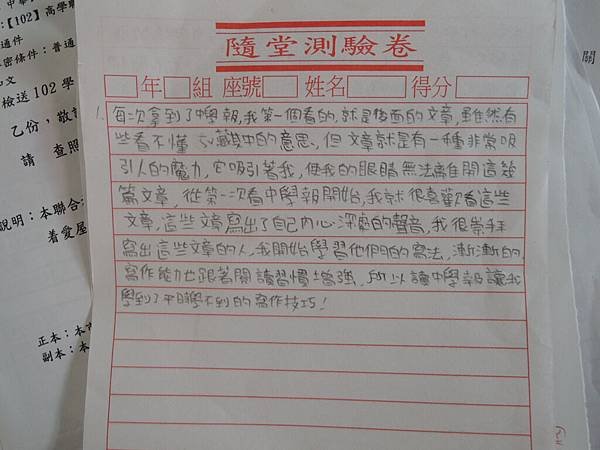 中華
:【102】高學
通件
密條件：普通
文
檢送102學
乙份，敬
請 查照
說明：本聯合
着愛屋
正本：本
副本：本
關
隨堂測驗卷
年 組 座號 姓名 得分
1. 每次拿到了中學報，我第一個看的，就是後面的文章，雖然有
些看不懂 藏其中的意思，但文章就是有一種非常吸
引人的魔力，它吸引著我，使我的眼睛無法離開這幾
篇文章，從第一次看中學報開始，我就很喜歡看這些
文章，這些文章寫出了自己內心深處的聲音，我很崇拜
寫出這些文章的人，我開始學習他們的寫法，漸漸的
寫作能力也跟著閱讀習慣增強，所以讀中學報讓我
學到了平時學不到的寫作技巧！